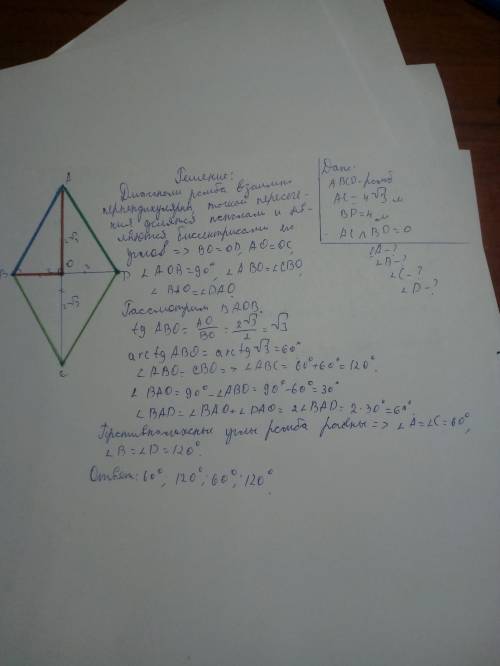 Решение:
Диагонали ромба взаимно
перпендикулярны, точкой пересече-
ния делятся пополам и яв-
ляются биссектрисами его
углов => BO = OD, AO = OC,
∠AOB = 90°, ∠ABO = ∠CBO,
∠BAO = ∠DAO.
Рассмотрим BAOB.
tg ABO = AO/BO = 2√3/2 = √3
arctg ABO = arctg √3 = 60°
∠ABO = CBO = > ∠ABC = 60° + 60° = 120°.
∠BAO = 90° - ∠ABO = 90° - 60° = 30°
∠BAD = ∠BAO + ∠DAO = 2∠BAD = 2·30° = 60°.
Противоположные углы ромба равны => ∠A = ∠C = 60°,
∠B = ∠D = 120°.
Ответ: 60°, 120°; 60°; 120°.
Дано:
ABCD - ромб
AC = 4√3 м
BD = 4 м
AC ∩ BD = O
∠A - ?
∠B - ?
∠C - ?
∠D - ?
A
2√3
B
O
D
2√3
C